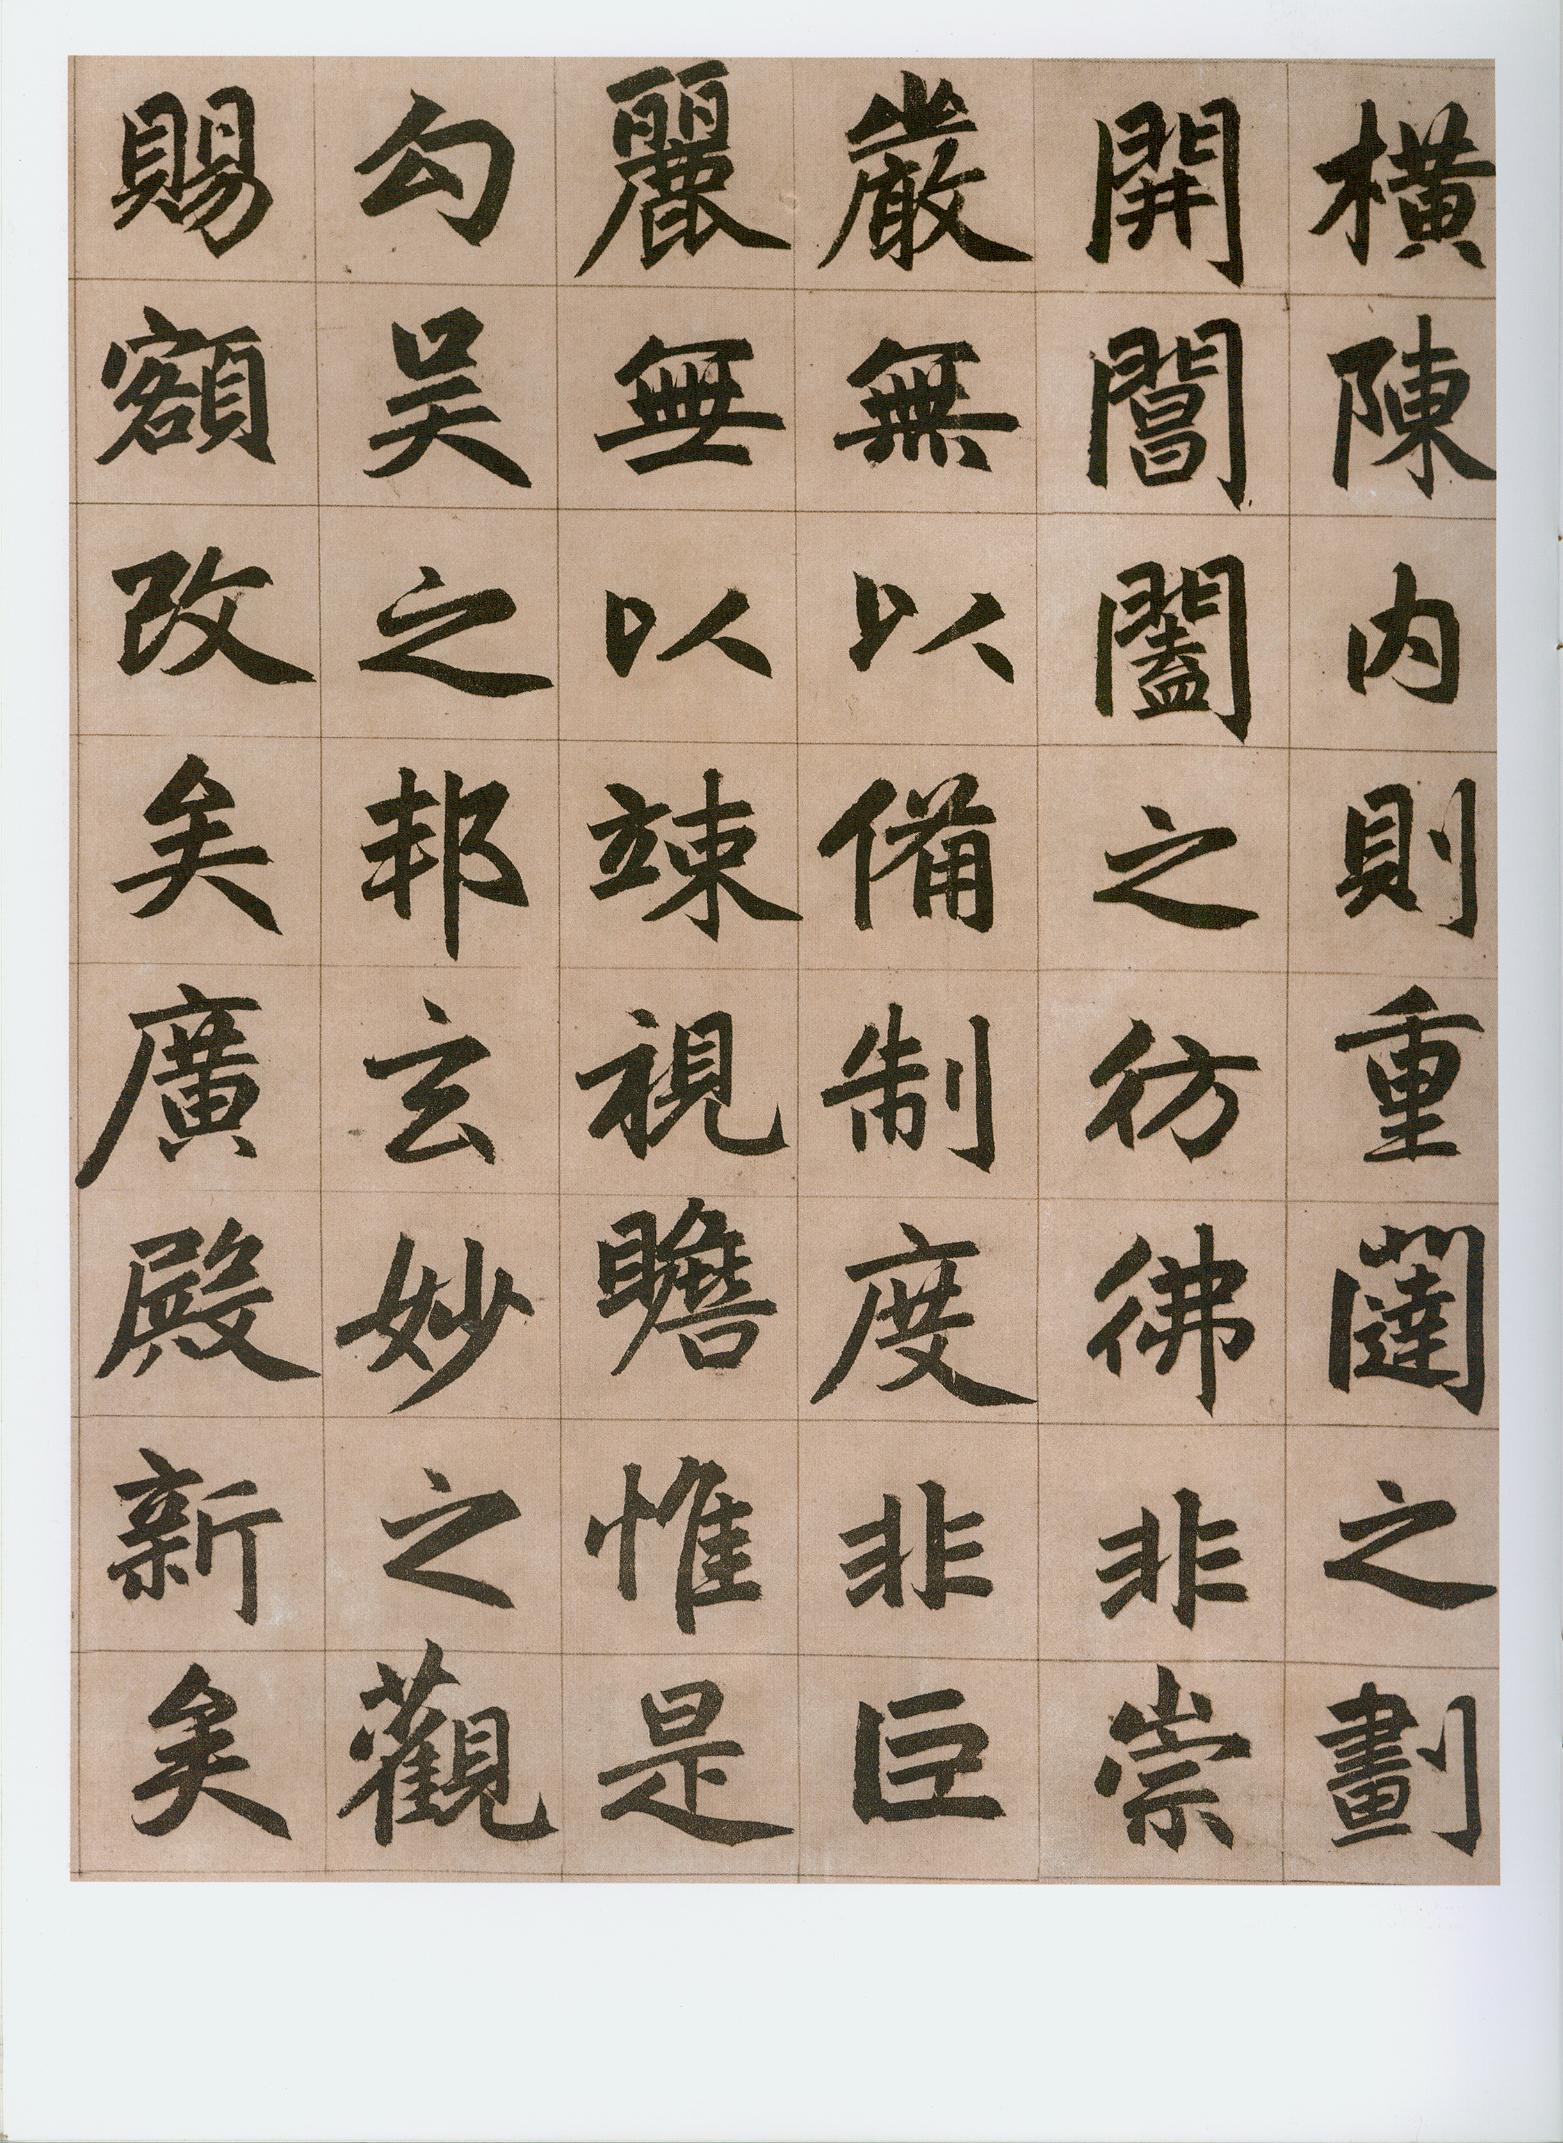 橫陳内則重闥之劃
開閶闔之彷彿非崇
嚴無以備制度非巨
麗無以竦視瞻惟是
勾吴之邦玄妙之觀
賜額改矣廣殿新矣